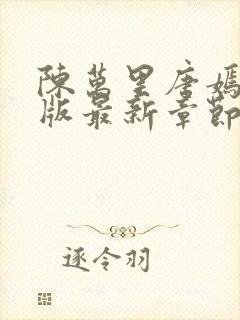 陳萬里唐嫣
版最新章節
逐令羽